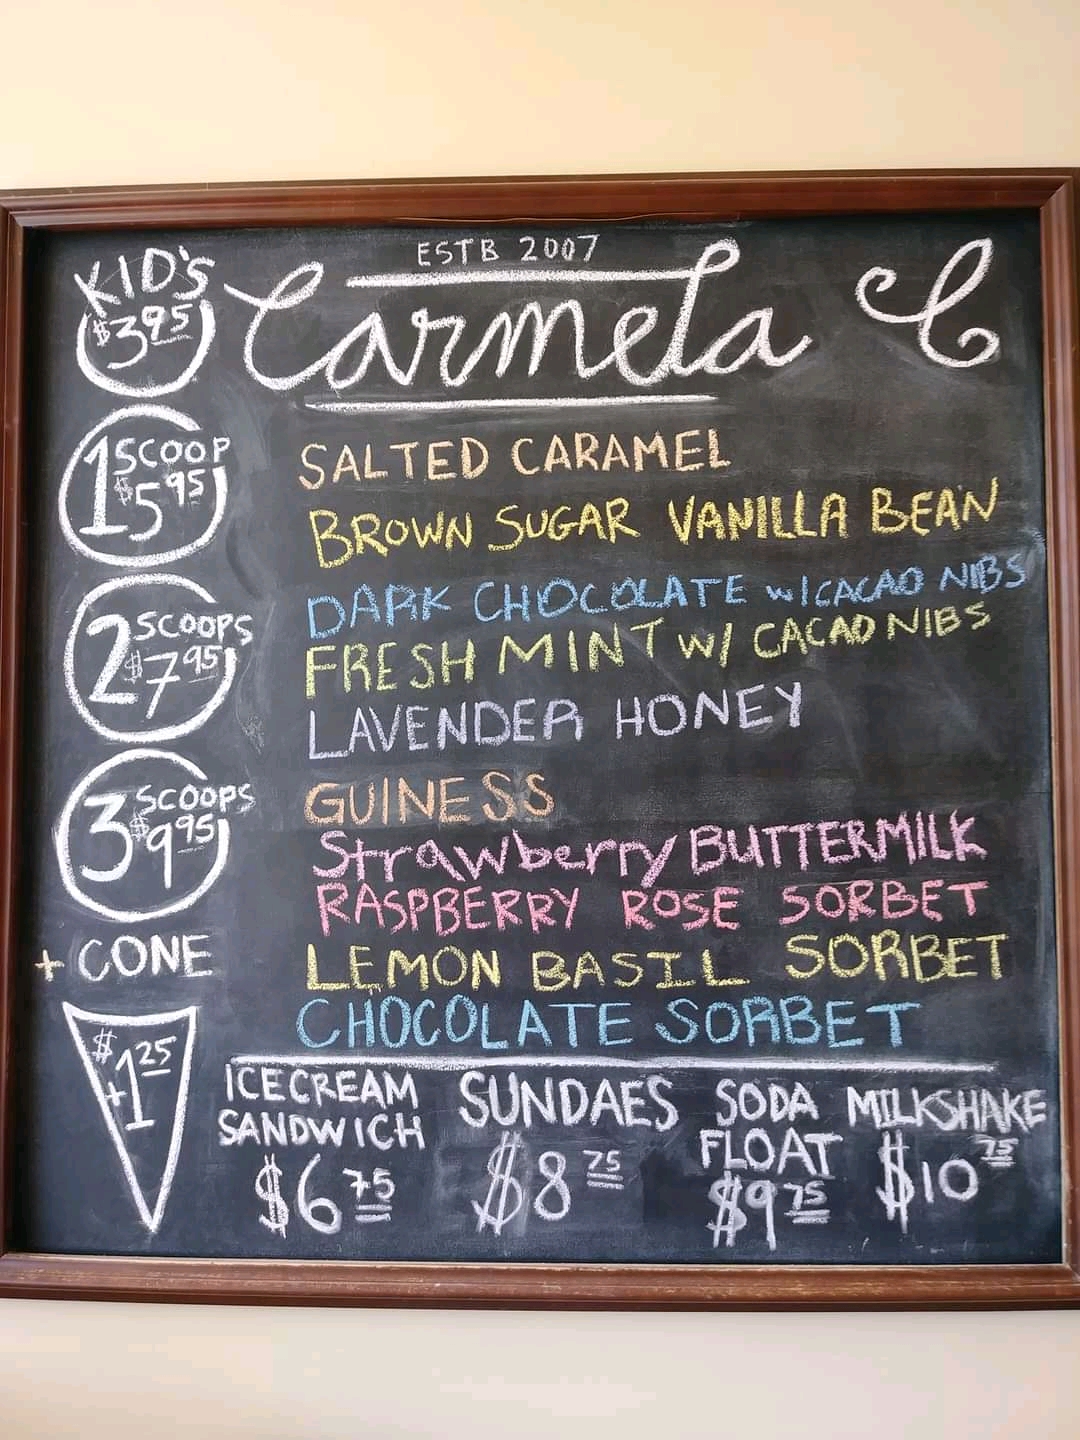 ESTB 2007
Carmela C
KID'S
$3.95
1 SCOOP
$5.95
2 SCOOPS
$7.95
3 SCOOPS
$9.95
+ CONE
$
+1.25
SALTED CARAMEL
BROWN SUGAR VANILLA BEAN
DARK CHOCOLATE w/CACAO NIBS
FRESH MINT W/ CACAO NIBS
LAVENDER HONEY
GUINESS
Strawberry BUTTERMILK
RASPBERRY ROSE SORBET
LEMON BASIL SORBET
CHOCOLATE SORBET
ICE CREAM
SANDWICH
$6.75
SUNDAES
$8.75
SODA
FLOAT
$9.75
MILKSHAKE
$10.75